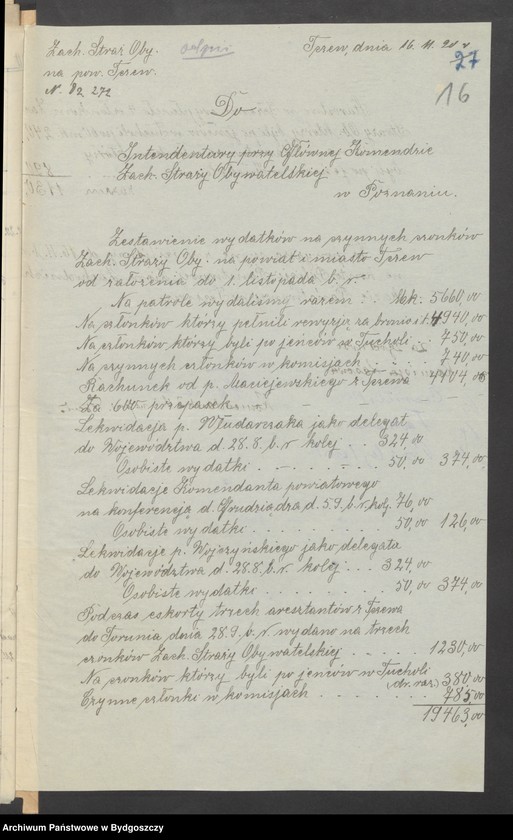 Zach. Straż Oby.
na pow. Tczew.
N. 82 272
Tczew, dnia 16. 11. 20 r
27
16
Do
Intendentury przy Głównej Komendzie
Zach. Straży Obywatelskiej
w Poznaniu.
Zestawienie wydatków na czynnych członków
Zach. Straży Oby. na powiat i miasto Tczew
od założenia do 1. listopada b. r.
Na patrole wydaliśmy razem : . Mk. 5660,00
Na członków którzy pełnili rewizję za bronią i t. 4940,00
Na członków, którzy byli po jeńców w Tucholi . . 450,00
Na czynnych członków w komisjach . . . . 740,00
Rachunek od p. Maciejewskiego z Tczewa 4404,05
Za 600 przepasek
Lekwidacja p. Włudarczaka jako delegat
do Województwa d. 28.8. b. r. kolej . . . 324,00
Osobiste wydatki . . . . . . . 50,00 374,00
Lekwidacje Komendanta powiatowego
na konferencją d. Grudziądza d. 5.9. b. r. kolj. 76,00
Osobiste wydatki . . . . . . . . 50,00 126,00
Lekwidacje p. Wojczyńskiego jako delegata
do Województwa d. 28.8. b. r. kolej . . . 324,00
Osobiste wydatki . . . . . . . . 50,00 374,00
Podczas eskorty trzech aresztantów z Tczewa
do Torunia dnia 28.9. b. r. wydano na trzech
członków Zach. Straży Obywatelskiej . . . . . 1230,00
Na członków którzy byli po jeńców w Tucholi 380,00
(dr. raz)
Czynne członki w komisjach . . . . . . . 785,00
19463,00
Archiwum Państwowe w Bydgoszczy